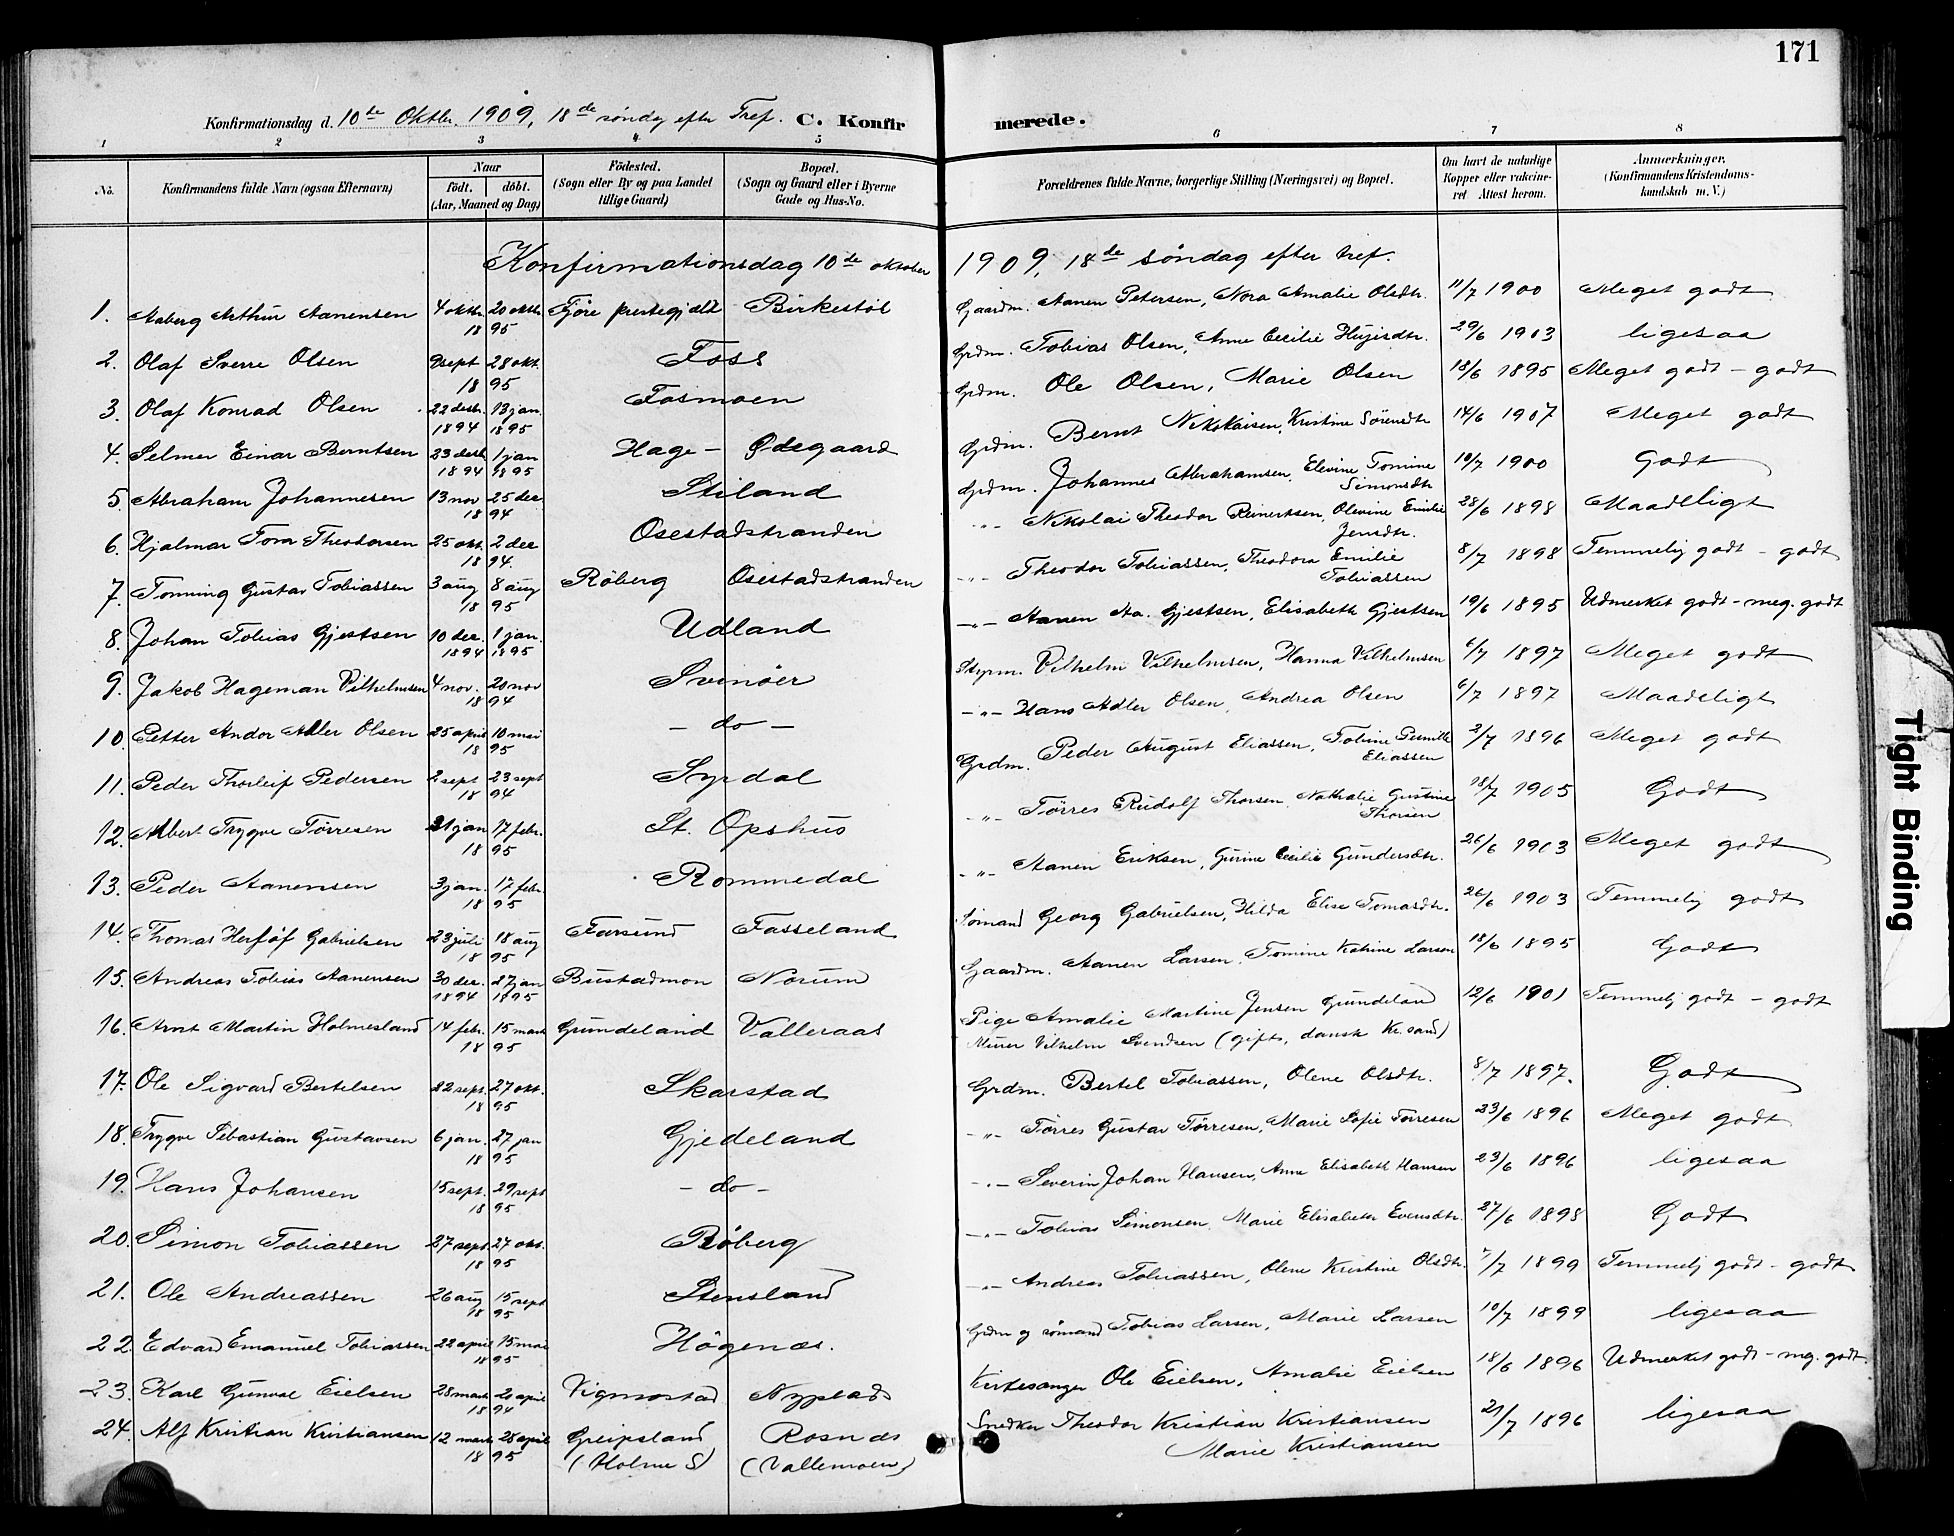 171
Konfirmationsdag d. 10de Oktbr. 1909, 18de søndag efter Tref. C. Konfirmerede.
1 2 3 4 5 6 7 8
No. Konfirmandens fulde Navn (ogsaa Efternavn) Naar født. døbt. (Aar, Maaned og Dag) Födested. (Sogn eller By og paa Landet tillige Gaard) Bopæl. (Sogn og Gaard eller i Byerne Gade og Hus-No. Forældrenes fulde Navne, borgerlige Stilling (Næringsvei) og Bopæl. Om havt de naturlige Kopper eller vakcineret Attest herom. Anmærkninger. (Konfirmandens Kristendomskundskab m. V.)
Konfirmationsdag 10de oktober 1909, 18de søndag efter tref.
1. Aaberg Arthur Aanensen 4 oktbr. 20 oktbr. 1895 Fjöre prestegjeld Birkestøl Gaardm. Aanen Petersen, Nora Amalie Olsdtr. 11/7 1900 Meget godt
2. Olaf Sverre Olsen 9 sept 28 okt. 1895 Foss Grdm. Tobias Olsen, Anne Cecilie 29/6 1903 ligesaa
3. Olaf Konrad Olsen 22 desbr. 1894 13 jan. 1895 Fosmoen Grdm. Ole Olsen, Marie Olsen 18/6 1895 Meget godt - godt
4. Selmer Einar Berntsen 23 desb. 1894 1 jan 1895 Hage - Ødegaard Grdm. Bernt Nikolaisen, Kristine Sörensdtr 14/6 1907 Meget godt
5. Abraham Johannesen 13 nov 25 dec 1894 Stiland Grdm. Johannes Abrahamsen, Elevine Tomine Simonsdtr 10/7 1900 Godt
6. Hjalmar Tom Theodorsen 25 okt. 2 dec 1894. Osestadstranden -"- Nikolai Theodor Reinertsen, Olevine Emilie Jensdtr. 28/6 1898 Maadeligt
7. Tonning Gustav Tobiassen 3 aug 8 aug 1895 Röberg Osestadstranden -"- Theodor Tobiassen, Theodora Emilie Tobiassen 8/7 1898 Temmelig godt - godt
8. Johan Tobias Gjestsen 10 dec. 1894 1 jan. 1895 Udland -"- Aanen Aa. Gjestsen, Elisabeth Gjestsen 19/6 1895 Udmerket godt - meg. godt
9. Jakob Hageman Vilhelmsen 4 nov. 20 nov 1894 Svinöer Skprm. Vilhelm Vilhelmsen, Hanna Vilhelmsen 6/7 1897 Meget godt
10. Petter Andor Adler Olsen 25 april 10 mai 1895 - do - -"- Hans Adler Olsen, Andrea Olsen 6/7 1897 Maadeligt
11. Peder Thorleif Pedersen 2 sept 23 sept 1894 Syrdal Grdm. Peder August Eliassen, Tobine Pernille Eliassen 2/7 1896 Meget godt
12. Albert Trygve Törresen 31 jan 17 febr. 1895 St. Opshus -"- Törres Rudolf Thorsen, Nathalie Gustine Thorsen 18/7 1905 Godt
13. Peder Aanensen 3 jan. 17 febr. 1895 Rommedal -"- Aanen Eriksen, Gurine Cecilie Gundersdtr. 26/6 1903 Meget godt
14. Thomas Gabrielsen 23 juli 18 aug 1895 Farsund Fasseland Sømand Georg Gabrielsen, Hilda Elise Tomasdtr. 26/6 1903 Temmelig godt
15. Andreas Tobias Aanensen 30 dec. 1894 27 jan 1895 Bustadmon Norum Gaardm. Aanen Larsen, Tomine Katrine Larsen 18/6 1895 Godt
16. Arnt Martin Holmesland 14 febr. 15 mars 1895 Gundeland Valleraas Pige Amalie Martine Jensen Gundeland 12/6 1901 Temmelig godt - godt
Murer Vilhelm Svendsen (gift, dansk Kr.sand)
17. Ole Sigvard Bertelsen 22 sept. 27 okt. 1895 Skarstad Grdm. Bertel Tobiassen, Olene Olsdtr. 8/7 1897. Godt
18. Trygve Sebastian Gustavsen 6 jan. 27 jan 1895 Gjedeland -"- Törres Gustav Törresen, Marie Sofie Törresen 23/6 1896 Meget godt
19. Hans Johansen 15 sept. 29 sept 1895 - do - -"- Severin Johan Hansen, Anne Elisabeth Hansen 23/6 1896 ligesaa
20. Simon Tobiassen 27 sept. 27 okt. 1895 Röberg -"- Tobias Simonsen, Marie Elisabeth Evensdtr. 27/6 1898 Godt
21. Ole Andreassen 26 aug 15 sept 1895 Stensland -"- Andreas Tobiassen, Olene Kristine Olsdtr. 7/7 1899 Temmelig godt - godt
22. Edvard Emanuel Tobiassen 22 april 15 mai 1895 Högenæs. Grdm og sömand Tobias Larsen, Marie Larsen 10/7 1899 ligesaa
23. Karl Gunval Eielsen 28 mars 20 april 1894 Vigmostad Nyplads Kirkesanger Ole Eielsen, Amalie Eielsen 18/6 1896 Udmerket godt - mg. godt
24. Alf Kristian Kristiansen 12 mars 28 april 1895 Greipsland (Holme S) Rosnæs (Vallemoen) Snedker Theodor Kristian Kristiansen 21/7 1896 ligesaa
Marie Kristiansen
Tight Binding